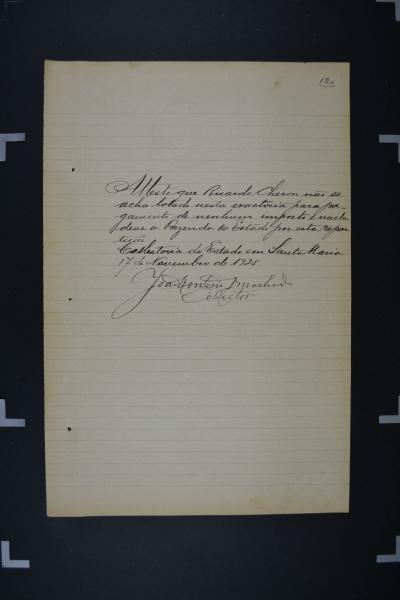 Attesto que Ricardo Cheron não se
acha lotado nesta exactoria para pa-
gamento de nenhum imposto e nada
deve a Fazenda do Estado por esta repar
tição
Collectoria do Estado em Santa Maria
17 de Novembro de 1925
Machado
Collector